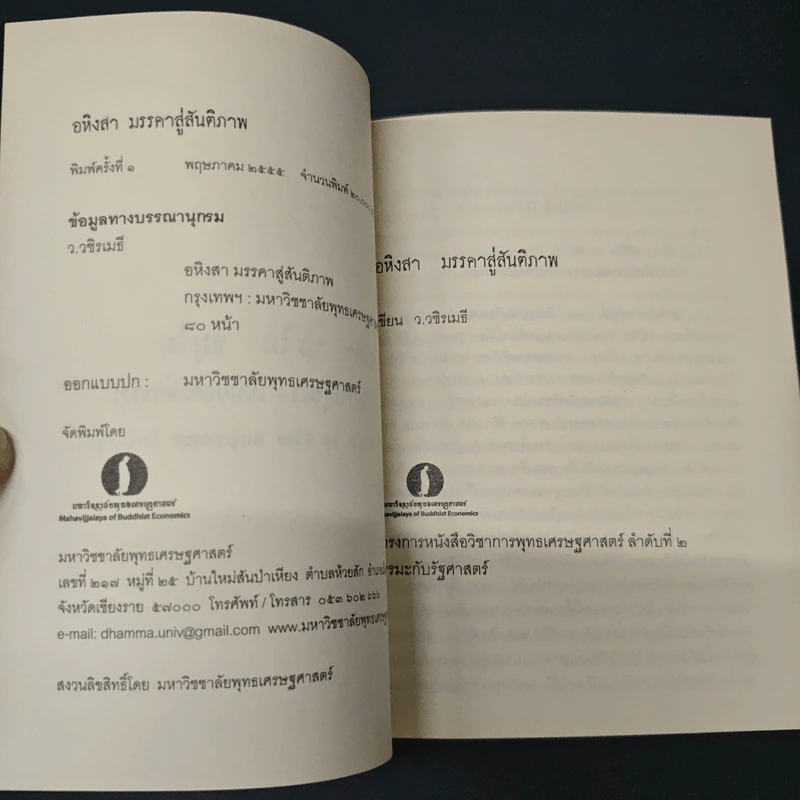 อหิงสา มรรคาสู่สันติภาพ
พิมพ์ครั้งที่ ๑ พฤษภาคม ๒๕๕๕ จำนวนพิมพ์
ข้อมูลทางบรรณานุกรม
ว.วชิรเมธี
อหิงสา มรรคาสู่สันติภาพ
กรุงเทพฯ : มหาวิชชาลัยพุทธเศรษฐศาสตร์
๘๐ หน้า
ออกแบบปก : มหาวิชชาลัยพุทธเศรษฐศาสตร์
จัดพิมพ์โดย
มหาวิชชาลัยพุทธเศรษฐศาสตร์
Mahavijjalaya of Buddhist Economics
มหาวิชชาลัยพุทธเศรษฐศาสตร์
เลขที่ ๒๑๗ หมู่ที่ ๒๕ บ้านใหม่สันป่าเหียง ตำบลห้วยสัก
จังหวัดเชียงราย ๕๗๐๐๐ โทรศัพท์ / โทรสาร ๐๕๓ ๖๐๒ ๖๖๖
e-mail: dhamma.univ@gmail.com
สงวนลิขสิทธิ์โดย มหาวิชชาลัยพุทธเศรษฐศาสตร์
อหิงสา มรรคาสู่สันติภาพ
เขียน ว.วชิรเมธี
มหาวิชชาลัยพุทธเศรษฐศาสตร์
Mahavijjalaya of Buddhist Economics
โครงการหนังสือวิชาการพุทธเศรษฐศาสตร์ ลำดับที่ ๒
ธรรมะกับรัฐศาสตร์